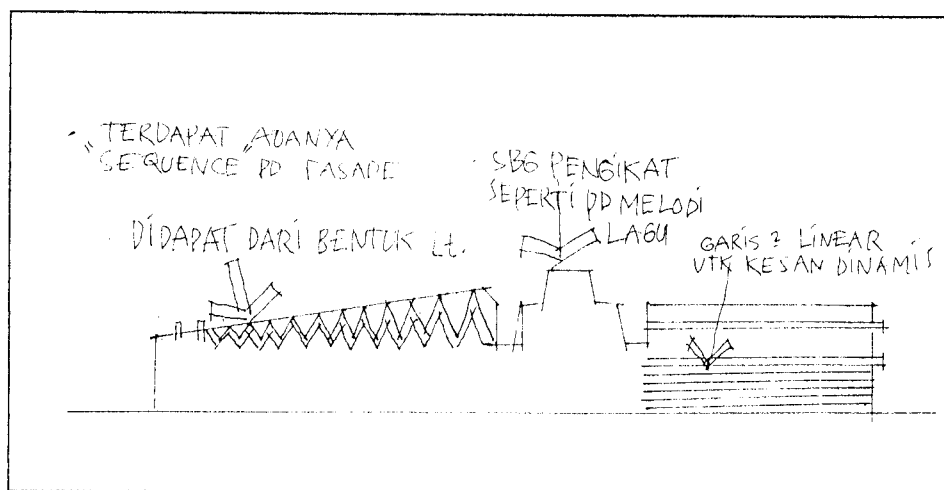 • TERDAPAT "ADANYA
" SEQUENCE PD FASADE
• DIDAPAT DARI BENTUK Lt.
• SBG PENGIKAT
SEPERTI PD MELODI
LAGU
GARIS 2 LINEAR
UTK KESAN DINAMIS